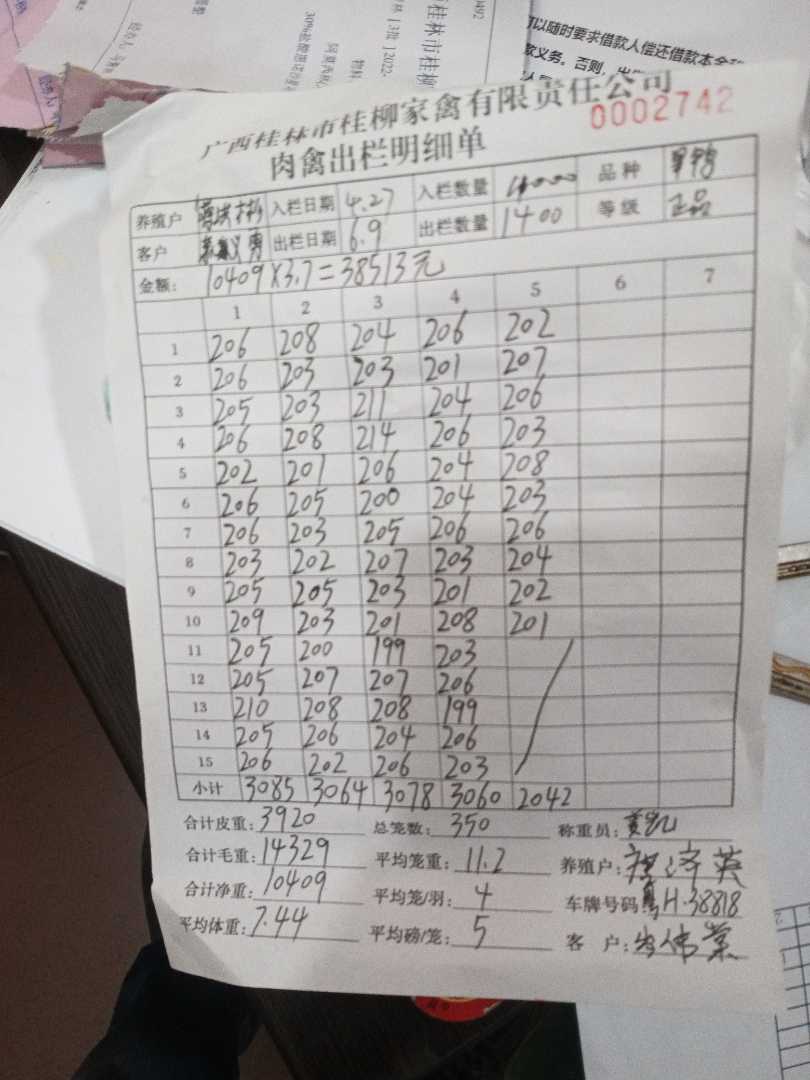 可以随时要求借款人偿还借款本金
广西桂林市桂柳家禽有限责任公司
肉禽出栏明细单 0002742
养殖户 入栏日期 4.27 入栏数量 品种
客户 出栏日期 6.9 出栏数量 1400 等级 正品
金额: 10409×3.7=38513元
1 2 3 4 5 6 7
1 206 208 204 206 202
2 206 203 203 201 207
3 205 203 211 204 206
4 206 208 214 206 203
5 202 201 206 204 208
6 206 205 200 204 203
7 206 203 205 206 206
8 203 202 207 203 204
9 205 205 203 201 202
10 209 203 201 208 201
11 205 200 199 203
12 205 207 207 206
13 210 208 208 199
14 205 206 204 206
15 206 202 206 203
小计 3085 3064 3078 3060 2042
合计皮重: 3920 总笼数: 350 称重员:
合计毛重: 14329 平均笼重: 11.2 养殖户:
合计净重: 10409 平均笼/羽: 4 车牌号码: H·38818
平均体重: 7.44 平均磅/笼: 5 客户: